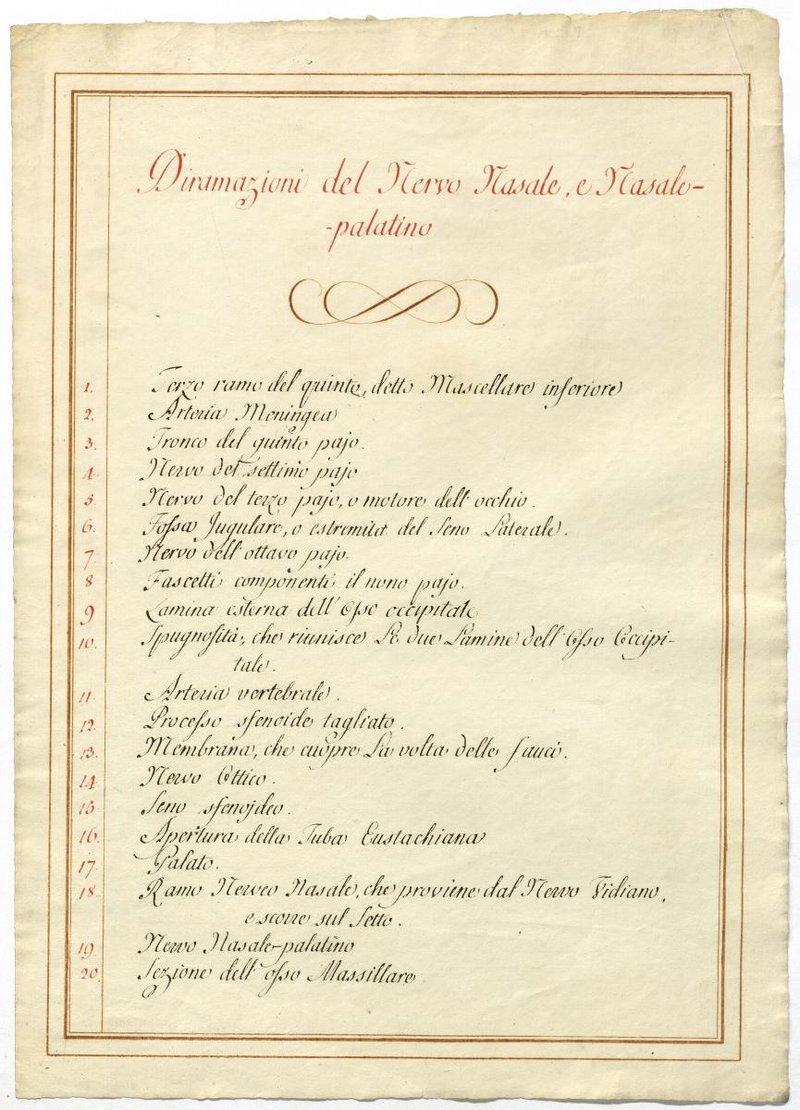 Diramazioni del Nervo Nasale, e Nasale-
-palatino
1. Terzo ramo del quinto, detto Mascellare inferiore
2. Arteria Meningea
3. Tronco del quinto pajo.
4. Nervo del settimo pajo
5. Nervo del terzo pajo, o motore dell'occhio.
6. Fossa Jugulare, o estremita del Seno Laterale.
7. Nervo dell'ottavo pajo.
8 Fascetti componenti il nono pajo.
9 Lamina esterna dell'Osso occipitale
10. Spugnosità, che riunisce Le due Lamine dell'Osso Occipi-
tale.
11 Arteria vertebrale.
12. Processo sfenoide tagliato.
13. Membrana, che cuopre La volta delle fauci.
14 Nervo Ottico.
15 Seno sfenojdeo.
16. Apertura della Tuba Eustachiana
17. Palato.
18. Ramo Nerveo Nasale, che proviene dal Nervo Vidiano,
e scorre sul Setto.
19 Nervo Nasale-palatino
20. Sezione dell'osso Massillare